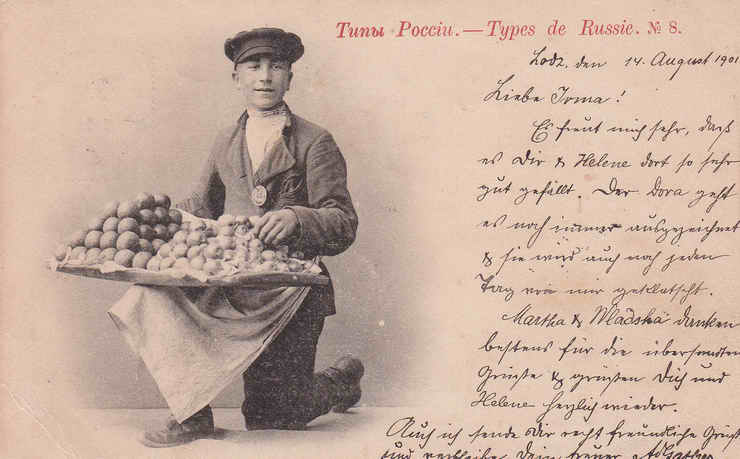 Типы Россіи.—Types de Russie. № 8.
Lodz, den 14. August 1901
Liebe Irma!
Es freut mich sehr, daß
es Dir & Helene dort so sehr
gut gefällt. Der Dora geht
es noch immer ausgezeichnet
& sie wird auch noch jeden
Tag von mir geklatscht.
Martha & Wladska danken
bestens für die übersandten
Grüße & grüßen Dich und
Helene herzlich wieder.
Auch ich sende Dir recht freundliche Grüße
und verbleibe Dein treuer